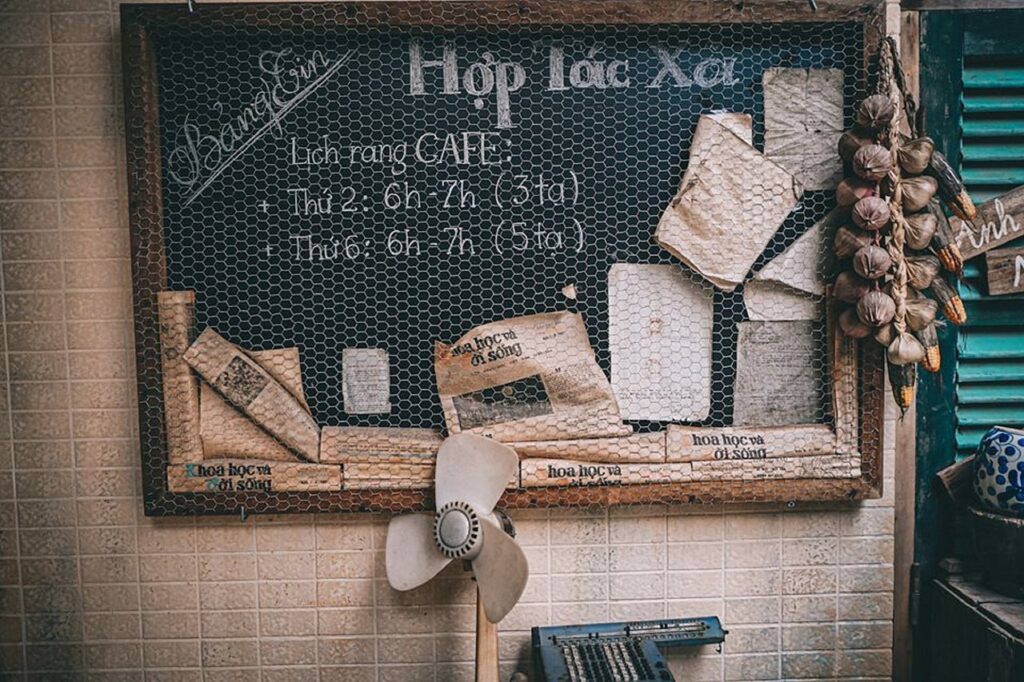 Bảng Tin
Hợp Tác Xã
Lịch rang CAFE:
+ Thứ 2: 6h - 7h (3 tạ)
+ Thứ 6: 6h - 7h (5 tạ)
hoa học và
ời sống
hoa học và
ời sống
Khoa học và
Đời sống
hoa học và
ời sống
Anh